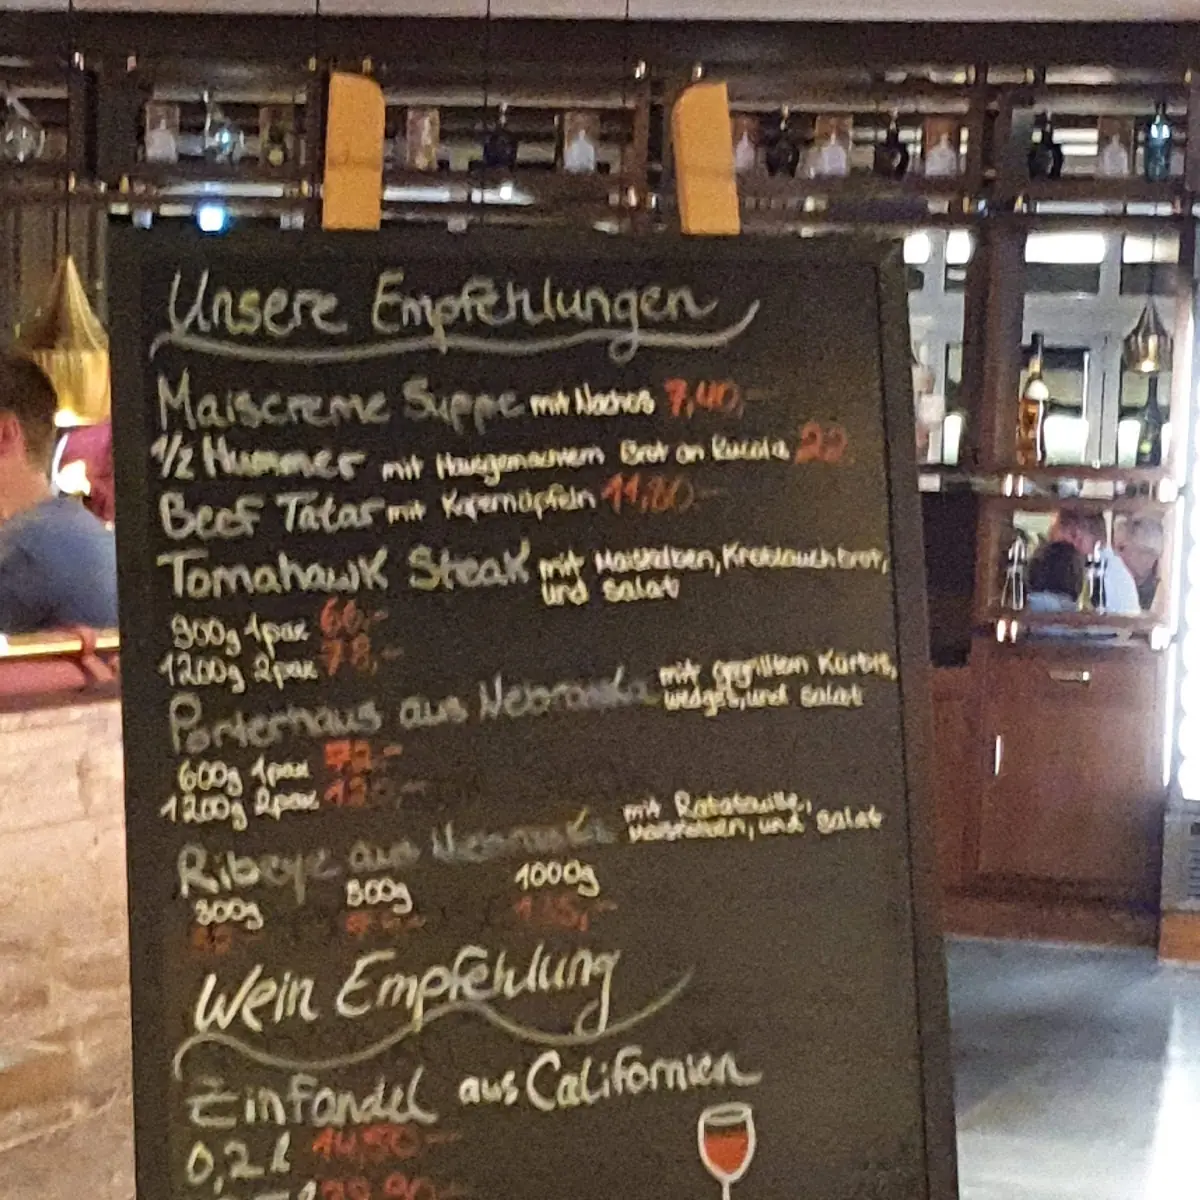 Unsere Empfehlungen
Maiscreme Suppe mit Nachos 7,40,-
1/2 Hummer mit Hausgemachtem Brot an Rucola 22
Beef Tatar mit Kapernäpfeln 11,80-
Tomahawk Steak mit Maiskolben, Knoblauchbrot,
und Salat
900g 1pax 66,-
1200g 2pax 78,-
Porterhaus aus Nebraska mit gegrillten Kürbis,
wedges, und Salat
600g 1pax
1200g 2pax
Ribeye aus Nebraska mit Ratatouille,
Maiskolben, und Salat
300g 500g 1000g
Wein Empfehlung
Zinfandel aus Californien
0,2 l 14,50-